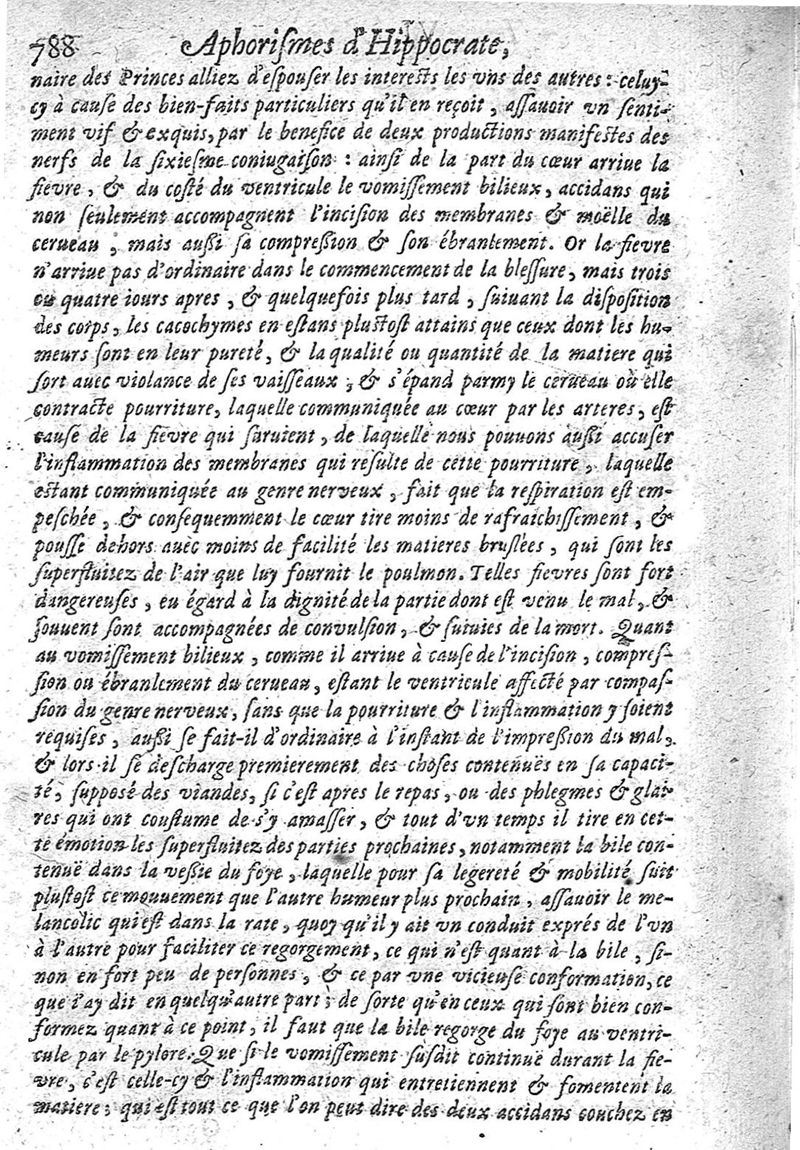 788 Aphoriſmes d'Hippocrate,
naire des Princes alliez d'eſpouſer les intereſts les vns des autres : celuy-
cy à cauſe des bien-faits particuliers qu'il en reçoit, aſſauoir vn ſenti-
ment vif & exquis, par le benefice de deux productions manifeſtes des
nerfs de la ſixieſme coniugaiſon : ainſi de la part du cœur arriue la
fievre, & du coſté du ventricule le vomiſſement bilieux, accidans qui
non ſeulement accompagnent l'inciſion des membranes & moëlle du
cerueau, mais auſſi ſa compreſſion & ſon ébranlement. Or la fievre
n'arriue pas d'ordinaire dans le commencement de la bleſſure, mais trois
ou quatre iours apres, & quelquefois plus tard, ſuiuant la diſpoſition
des corps, les cacochymes en eſtans pluſtoſt attains que ceux dont les hu-
meurs ſont en leur pureté, & la qualité ou quantité de la matiere qui
ſort auec violance de ſes vaiſſeaux, & s'épand parmy le cerueau où elle
contracte pourriture, laquelle communiquée au cœur par les arteres, eſt
cauſe de la fievre qui ſuruient, de laquelle nous pouuons auſſi accuſer
l'inflammation des membranes qui reſulte de cette pourriture, laquelle
eſtant communiquée au genre nerveux, fait que la reſpiration eſt em-
peſchée, & conſequemment le cœur tire moins de rafraichiſſement, &
pouſſe dehors auec moins de facilité les matieres bruſlées, qui ſont les
ſuperfluitez de l'air que luy fournit le poulmon. Telles fievres ſont fort
dangereuſes, eu égard à la dignité de la partie dont eſt venu le mal, &
ſouuent ſont accompagnées de convulſion, & ſuiuies de la mort. Quant
au vomiſſement bilieux, comme il arriue à cauſe de l'inciſion, compreſ-
ſion ou ébranlement du cerueau, eſtant le ventricule affecté par compaſ-
ſion du genre nerveux, ſans que la pourriture & l'inflammation y ſoient
requiſes, auſſi ſe fait-il d'ordinaire à l'inſtant de l'impreſſion du mal,
& lors il ſe deſcharge premierement des choſes contenuës en ſa capaci-
té, ſuppoſé des viandes, ſi c'eſt apres le repas, ou des phlegmes & glai-
res qui ont couſtume de s'y amaſſer, & tout d'vn temps il tire en cet-
te émotion les ſuperfluitez des parties prochaines, notamment la bile con-
tenuë dans la veſſie du foye, laquelle pour ſa legereté & mobilité ſuit
pluſtoſt ce mouuement que l'autre humeur plus prochain, aſſauoir le me-
lancolic qui eſt dans la rate, quoy qu'il y ait vn conduit exprés de l'vn
à l'autre pour faciliter ce regorgement, ce qui n'eſt quant à la bile, ſi-
non en fort peu de perſonnes, & ce par vne vicieuſe conformation, ce
que i'ay dit en quelqu'autre part; de ſorte qu'en ceux qui ſont bien con-
formez quant à ce point, il faut que la bile regorge du foye au ventri-
cule par le pylore. Que ſi le vomiſſement ſuſdit continuë durant la fie-
vre, c'eſt celle-cy & l'inflammation qui entretiennent & fomentent la
matiere; qui eſt tout ce que l'on peut dire des deux accidans couchez en